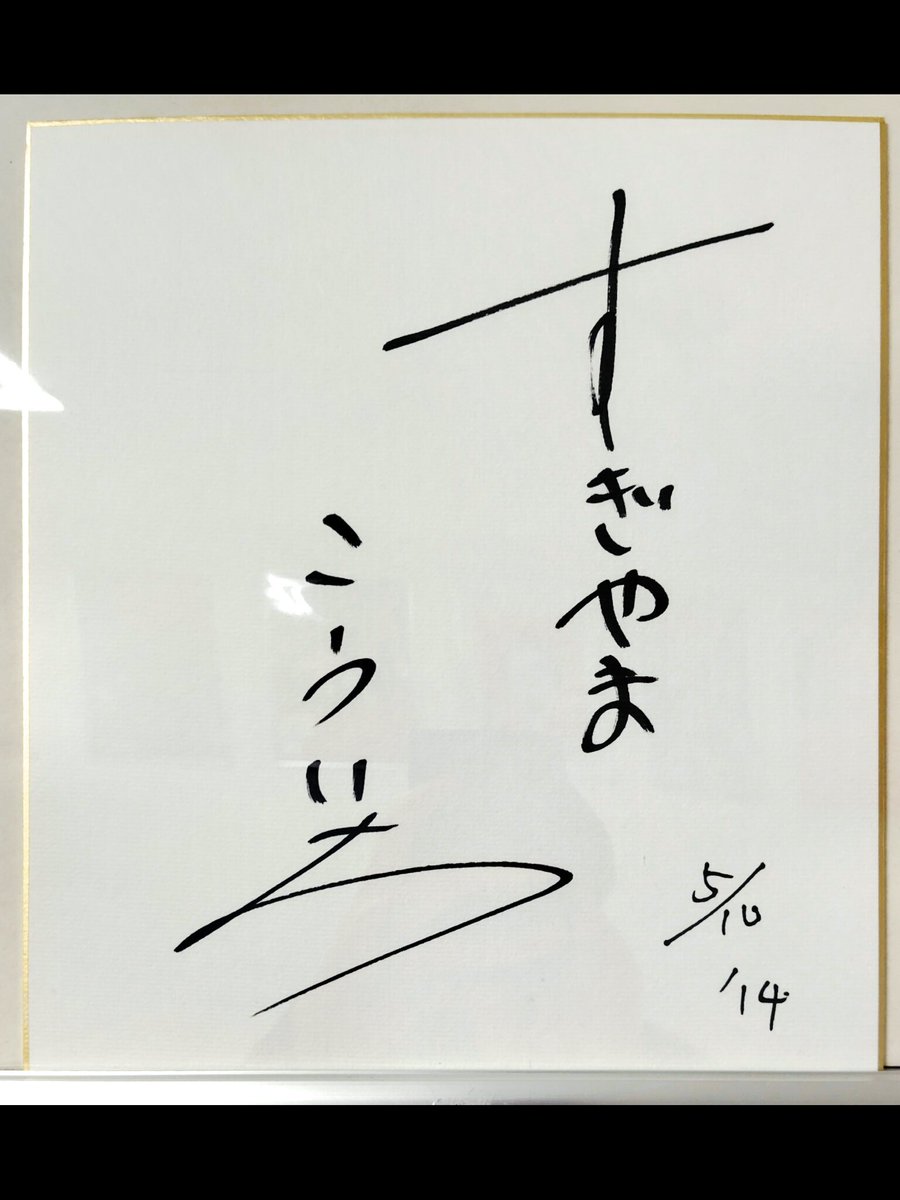 すぎやま
こういち
5/10
'14